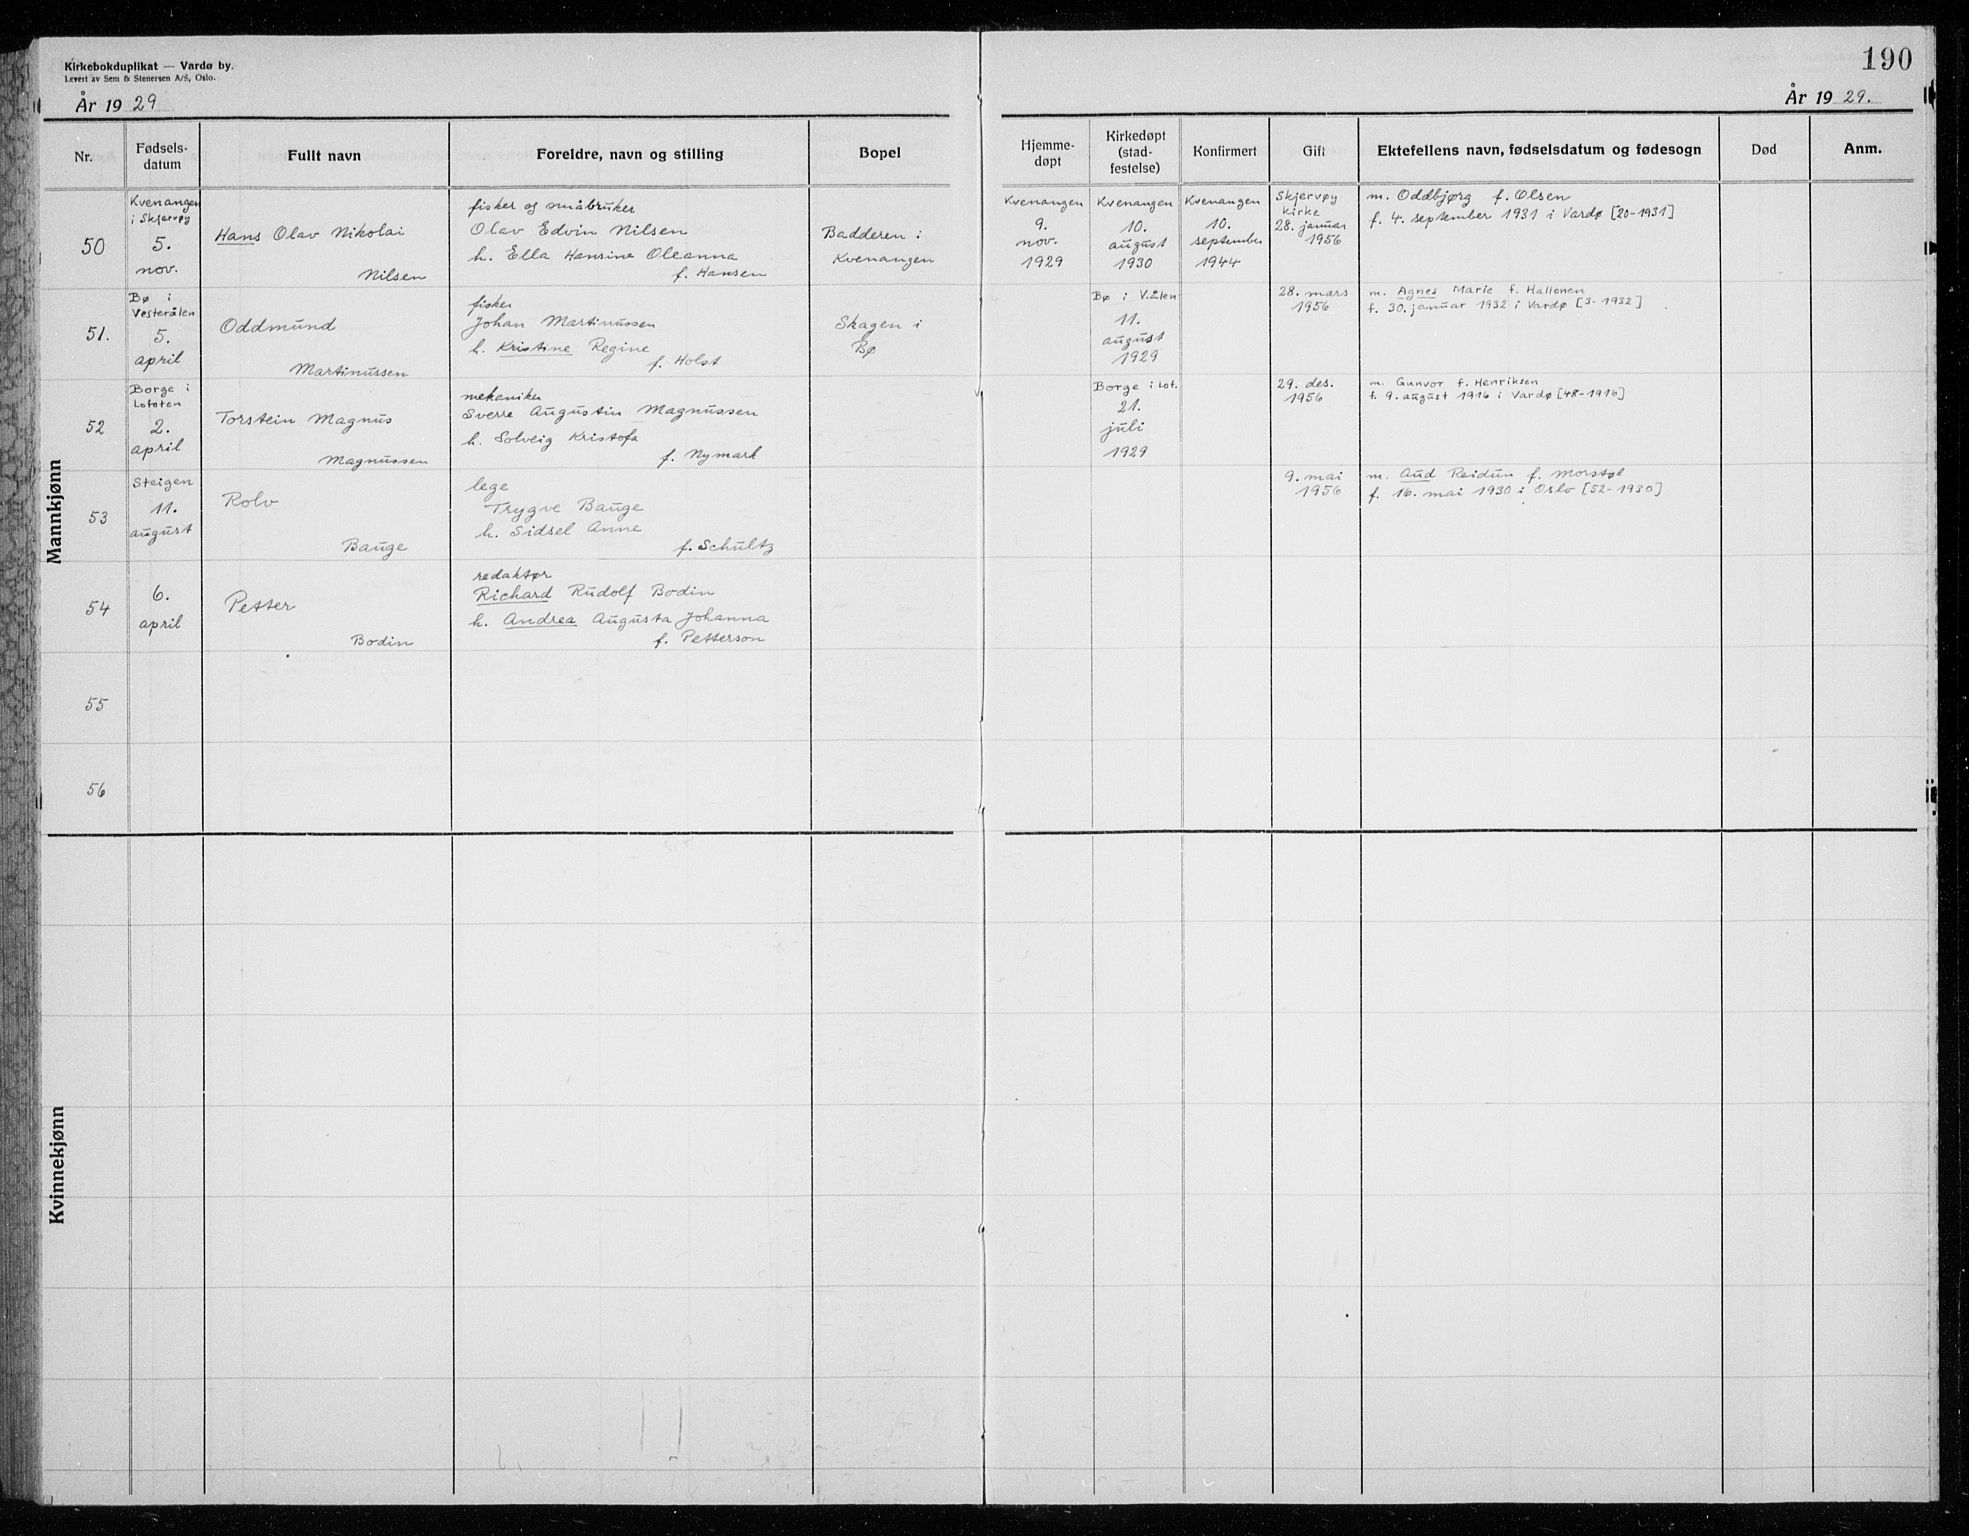 Kirkebokduplikat — Vardø by.
Levert av Sem & Stenersen A/S, Oslo.
190
År 1929
År 1929.
Nr.
Fødsels-
datum
Fullt navn
Foreldre, navn og stilling
Bopel
Hjemme-
døpt
Kirkedøpt
(stad-
festelse)
Konfirmert
Gift
Ektefellens navn, fødselsdatum og fødesogn
Død
Anm.
Mannkjønn
50
Kvenangen
i Skjervøy
5.
nov.
Hans Olav Nikolai
Nilsen
fisker og småbruker
Olav Edvin Nilsen
h. Ella Hansine Oleanna
f. Hansen
Badderen i
Kvenangen
Kvenangen
9.
nov.
1929
Kvenangen
10.
august
1930
Kvenangen
10.
september
1944
Skjervøy
Kirke
28. januar
1956
m. Oddbjørg f. Olsen
f. 4. september 1931 i Vardø [20-1931]
51.
Bø i
Vesterålen
5.
april
Oddmund
Martinussen
fisker
Johan Martinussen
h. Kristine Regine
f. Holst
Skagen i
Bø
Bø i V.ålen
11.
august
1929
28. mars
1956
m. Agnes Marie f. Hallonen
f. 30. januar 1932 i Vardø [3-1932]
52
Borge i
Lofoten
2.
april
Torstein Magnus
Magnussen
mekaniker
Sverre Augustin Magnussen
h. Solveig Kristofa
f. Nymark
Borge i Lof.
21.
juli
1929
29. des.
1956
m. Gunvor f. Henriksen
f. 9. august 1916 i Vardø [48-1916]
53
Steigen
11.
august
Rolv
Bauge
lege
Trygve Bauge
h. Sidsel Anne
f. Schultz
9. mai
1956
m. Aud Reidun f. Morstøl
f. 16. mai 1930 i Oslo [52-1930]
54
6.
april
Petter
Bodin
redaktør
Richard Rudolf Bodin
h. Andrea Augusta Johanna
f. Petterson
55
56
Kvinnekjønn